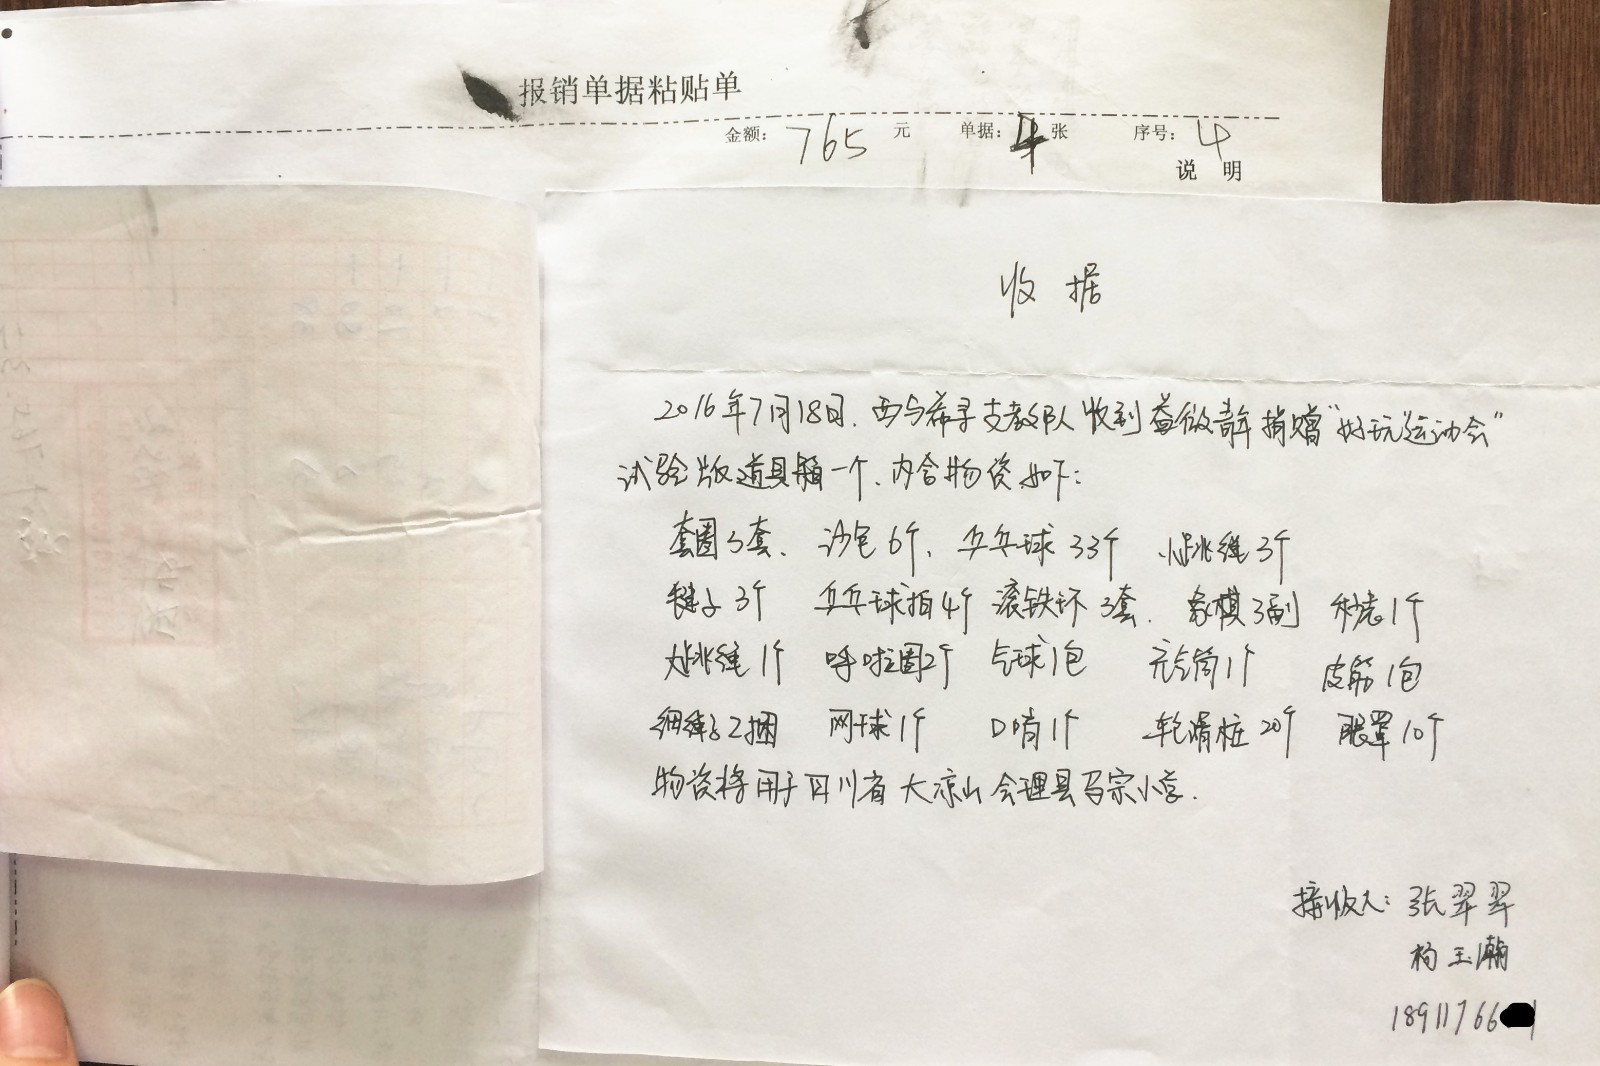 报销单据粘贴单
金额: 765 元 单据: 4 张 序号: 4
说 明
收 据
2016年7月18日，西与希寻支教队收到益微青年捐赠“好玩运动会”
试验版道具箱一个、内含物资如下：
套圈5套、沙包6个、乒乓球33个 小跳绳3个
毽子3个 乒乓球拍4个 滚铁环3套、象棋3副 秒表1个
大跳绳1个 呼啦圈2个 气球1包 充气筒1个 皮筋1包
细绳子2捆 网球1个 口哨1个 轮滑桩20个 眼罩10个
物资将用于四川省大凉山会理县马宗小学.
接收人：张翠翠
杨玉瀚
18911766